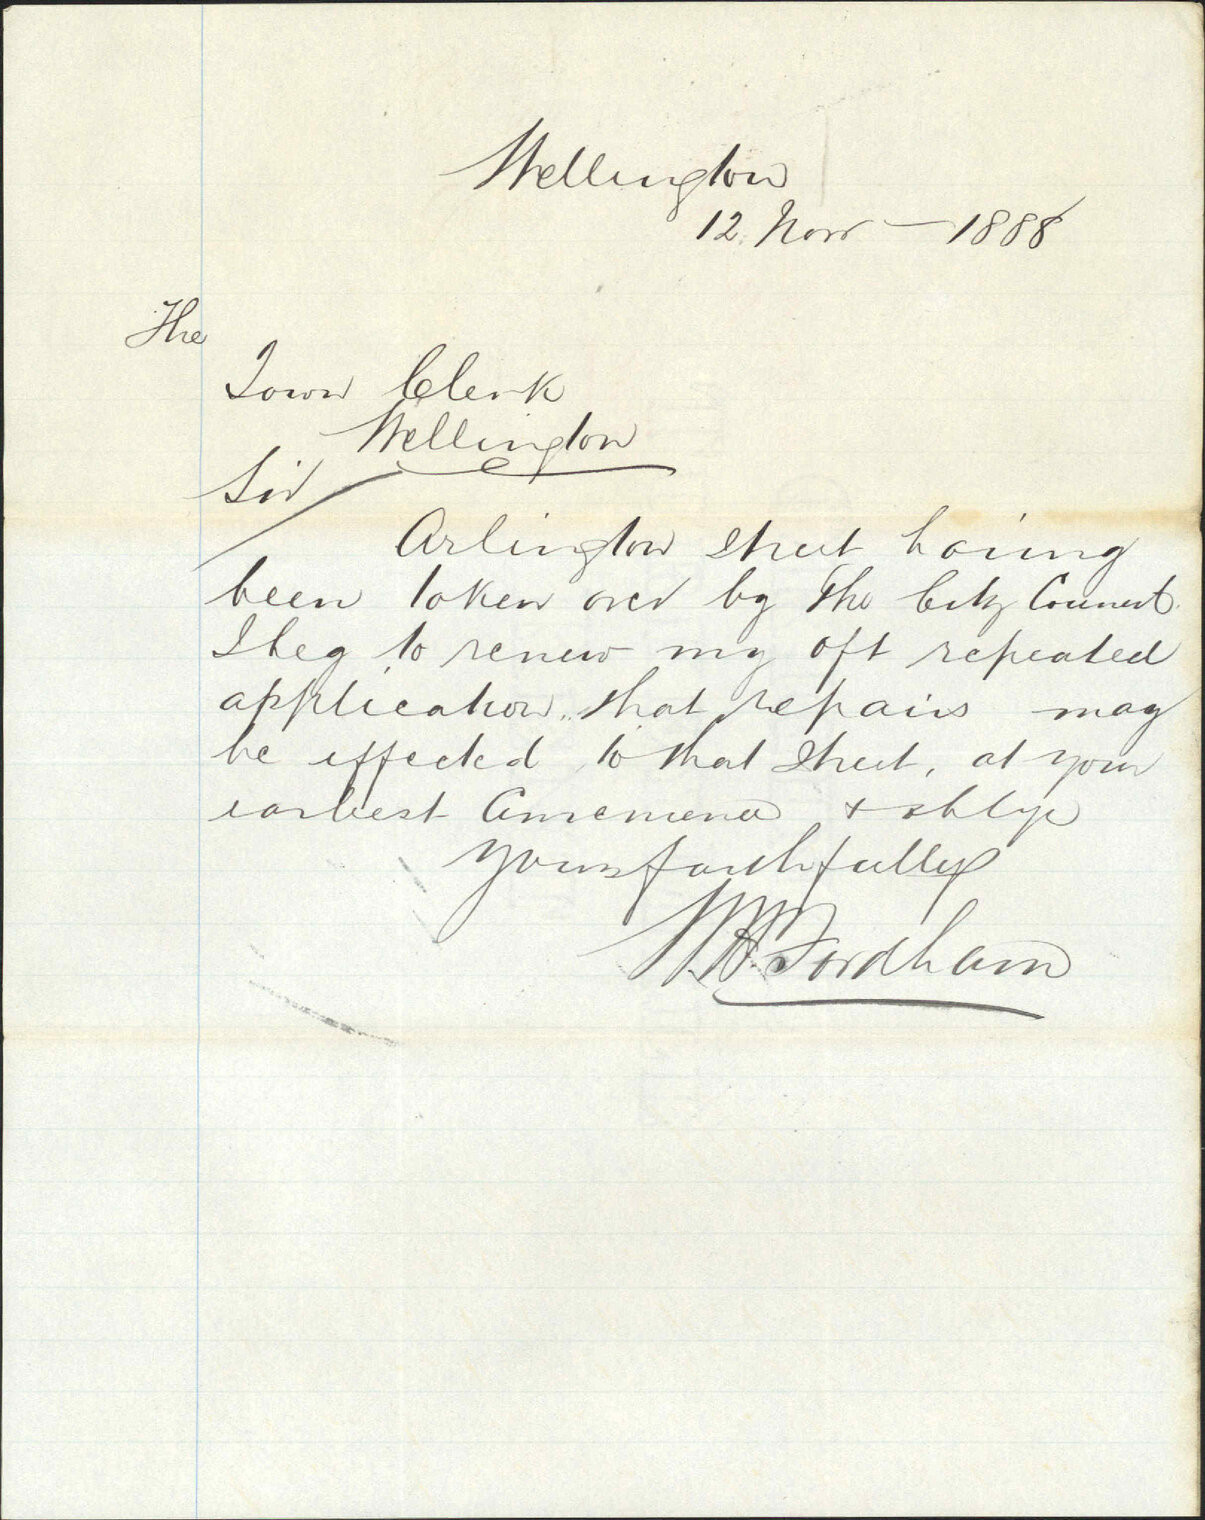 Wellington
12 Novr — 1888
The
Town Clerk
Wellington
Sir
Arlington Street having
been taken over by the City Council.
I beg to renew my oft repeated
application, that repairs may
be effected to that Street, at your
earliest Convenience & oblige
Yours faithfully
Fordham